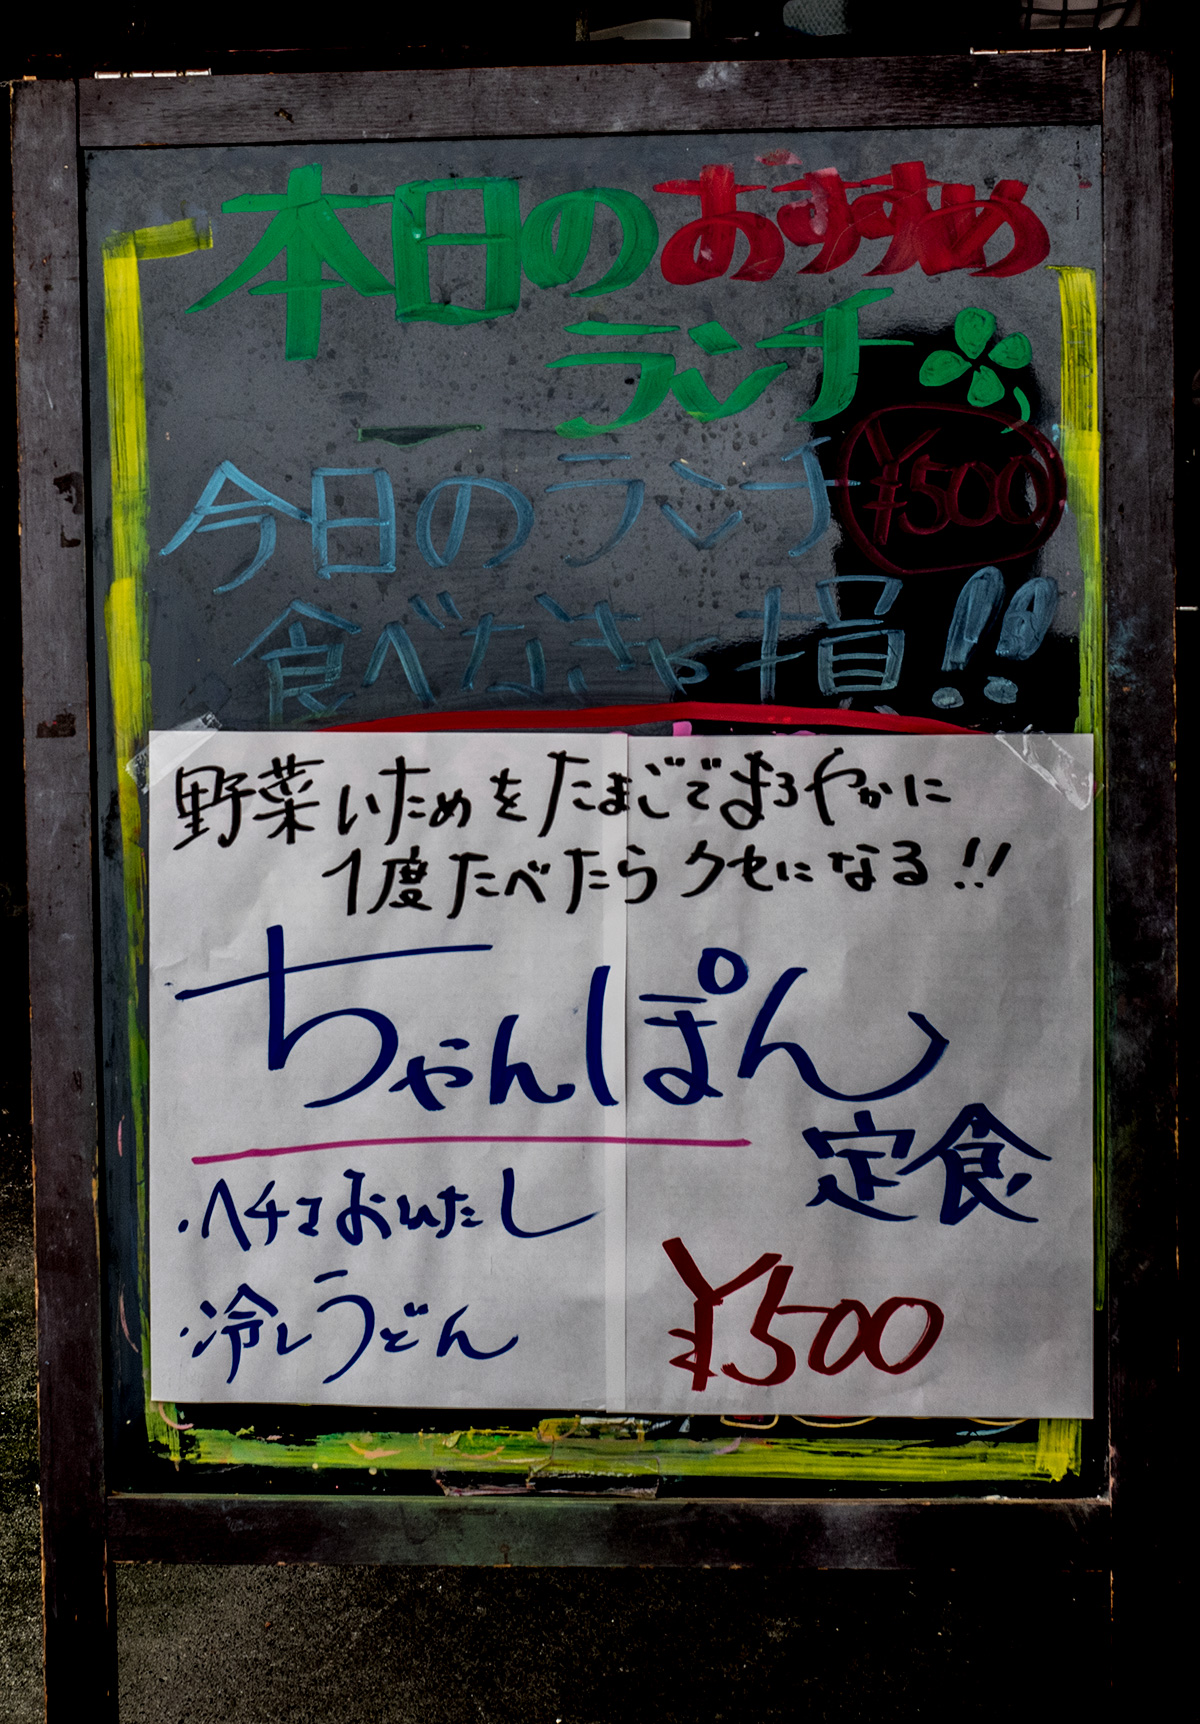 本日のおすすめ
ランチ
¥500
今日のランチ
食べなきゃ損!!
野菜いためをたまごでまろやかに
1度たべたらクセになる!!
ちゃんぽん
定食
・ヘチマおひたし
・冷しうどん
¥500